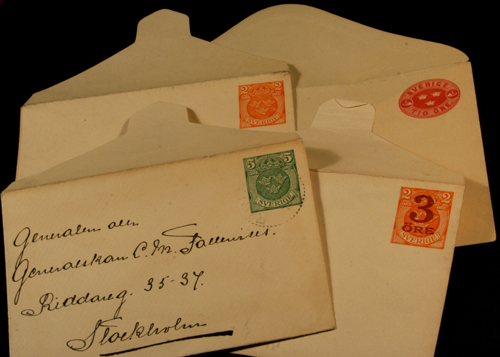 2 2
SVERIGE
SVERIGE
TIO ÖRE
5 5
SVERIGE
2 2
3
ÖRE
SVERIGE
Generalen
Generalskan C. M.
Riddareg. 35-37.
Stockholm